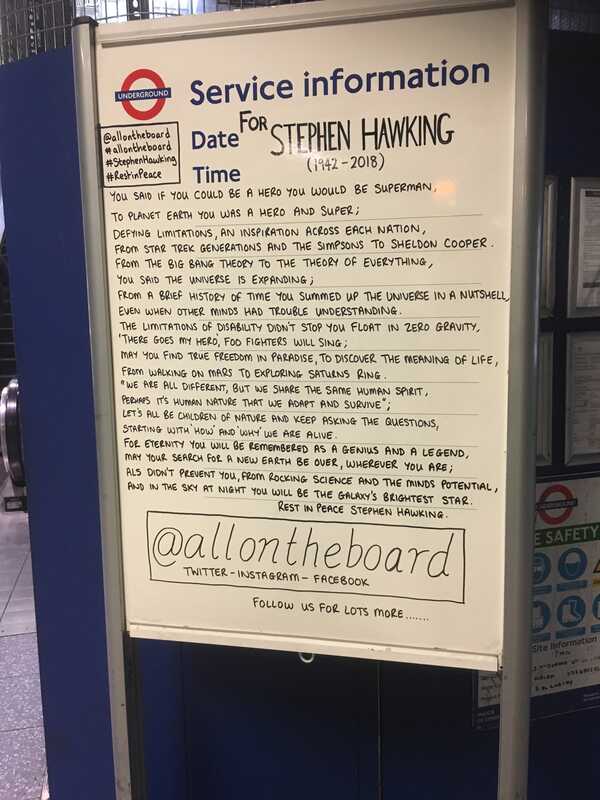 UNDERGROUND
Service information
Date FOR STEPHEN HAWKING
Time (1942-2018)
@allontheboard
#allontheboard
#StephenHawking
#RestinPeace
YOU SAID IF YOU COULD BE A HERO YOU WOULD BE SUPERMAN,
TO PLANET EARTH YOU WAS A HERO AND SUPER;
DEFYING LIMITATIONS, AN INSPIRATION ACROSS EACH NATION,
FROM STAR TREK GENERATIONS AND THE SIMPSONS TO SHELDON COOPER.
FROM THE BIG BANG THEORY TO THE THEORY OF EVERYTHING,
YOU SAID THE UNIVERSE IS EXPANDING;
FROM A BRIEF HISTORY OF TIME YOU SUMMED UP THE UNIVERSE IN A NUTSHELL,
EVEN WHEN OTHER MINDS HAD TROUBLE UNDERSTANDING.
THE LIMITATIONS OF DISABILITY DIDN'T STOP YOU FLOAT IN ZERO GRAVITY,
'THERE GOES MY HERO', FOO FIGHTERS WILL SING;
MAY YOU FIND TRUE FREEDOM IN PARADISE, TO DISCOVER THE MEANING OF LIFE,
FROM WALKING ON MARS TO EXPLORING SATURNS RING.
"WE ARE ALL DIFFERENT, BUT WE SHARE THE SAME HUMAN SPIRIT,
PERHAPS IT'S HUMAN NATURE THAT WE ADAPT AND SURVIVE";
LET'S ALL BE CHILDREN OF NATURE AND KEEP ASKING THE QUESTIONS,
STARTING WITH 'HOW' AND 'WHY' WE ARE ALIVE.
FOR ETERNITY YOU WILL BE REMEMBERED AS A GENIUS AND A LEGEND,
MAY YOUR SEARCH FOR A NEW EARTH BE OVER, WHEREVER YOU ARE;
ALS DIDN'T PREVENT YOU, FROM ROCKING SCIENCE AND THE MINDS POTENTIAL,
AND IN THE SKY AT NIGHT YOU WILL BE THE GALAXY'S BRIGHTEST STAR.
REST IN PEACE STEPHEN HAWKING.
@allontheboard
TWITTER - INSTAGRAM - FACEBOOK
FOLLOW US FOR LOTS MORE.......
E SAFETY
Site Information